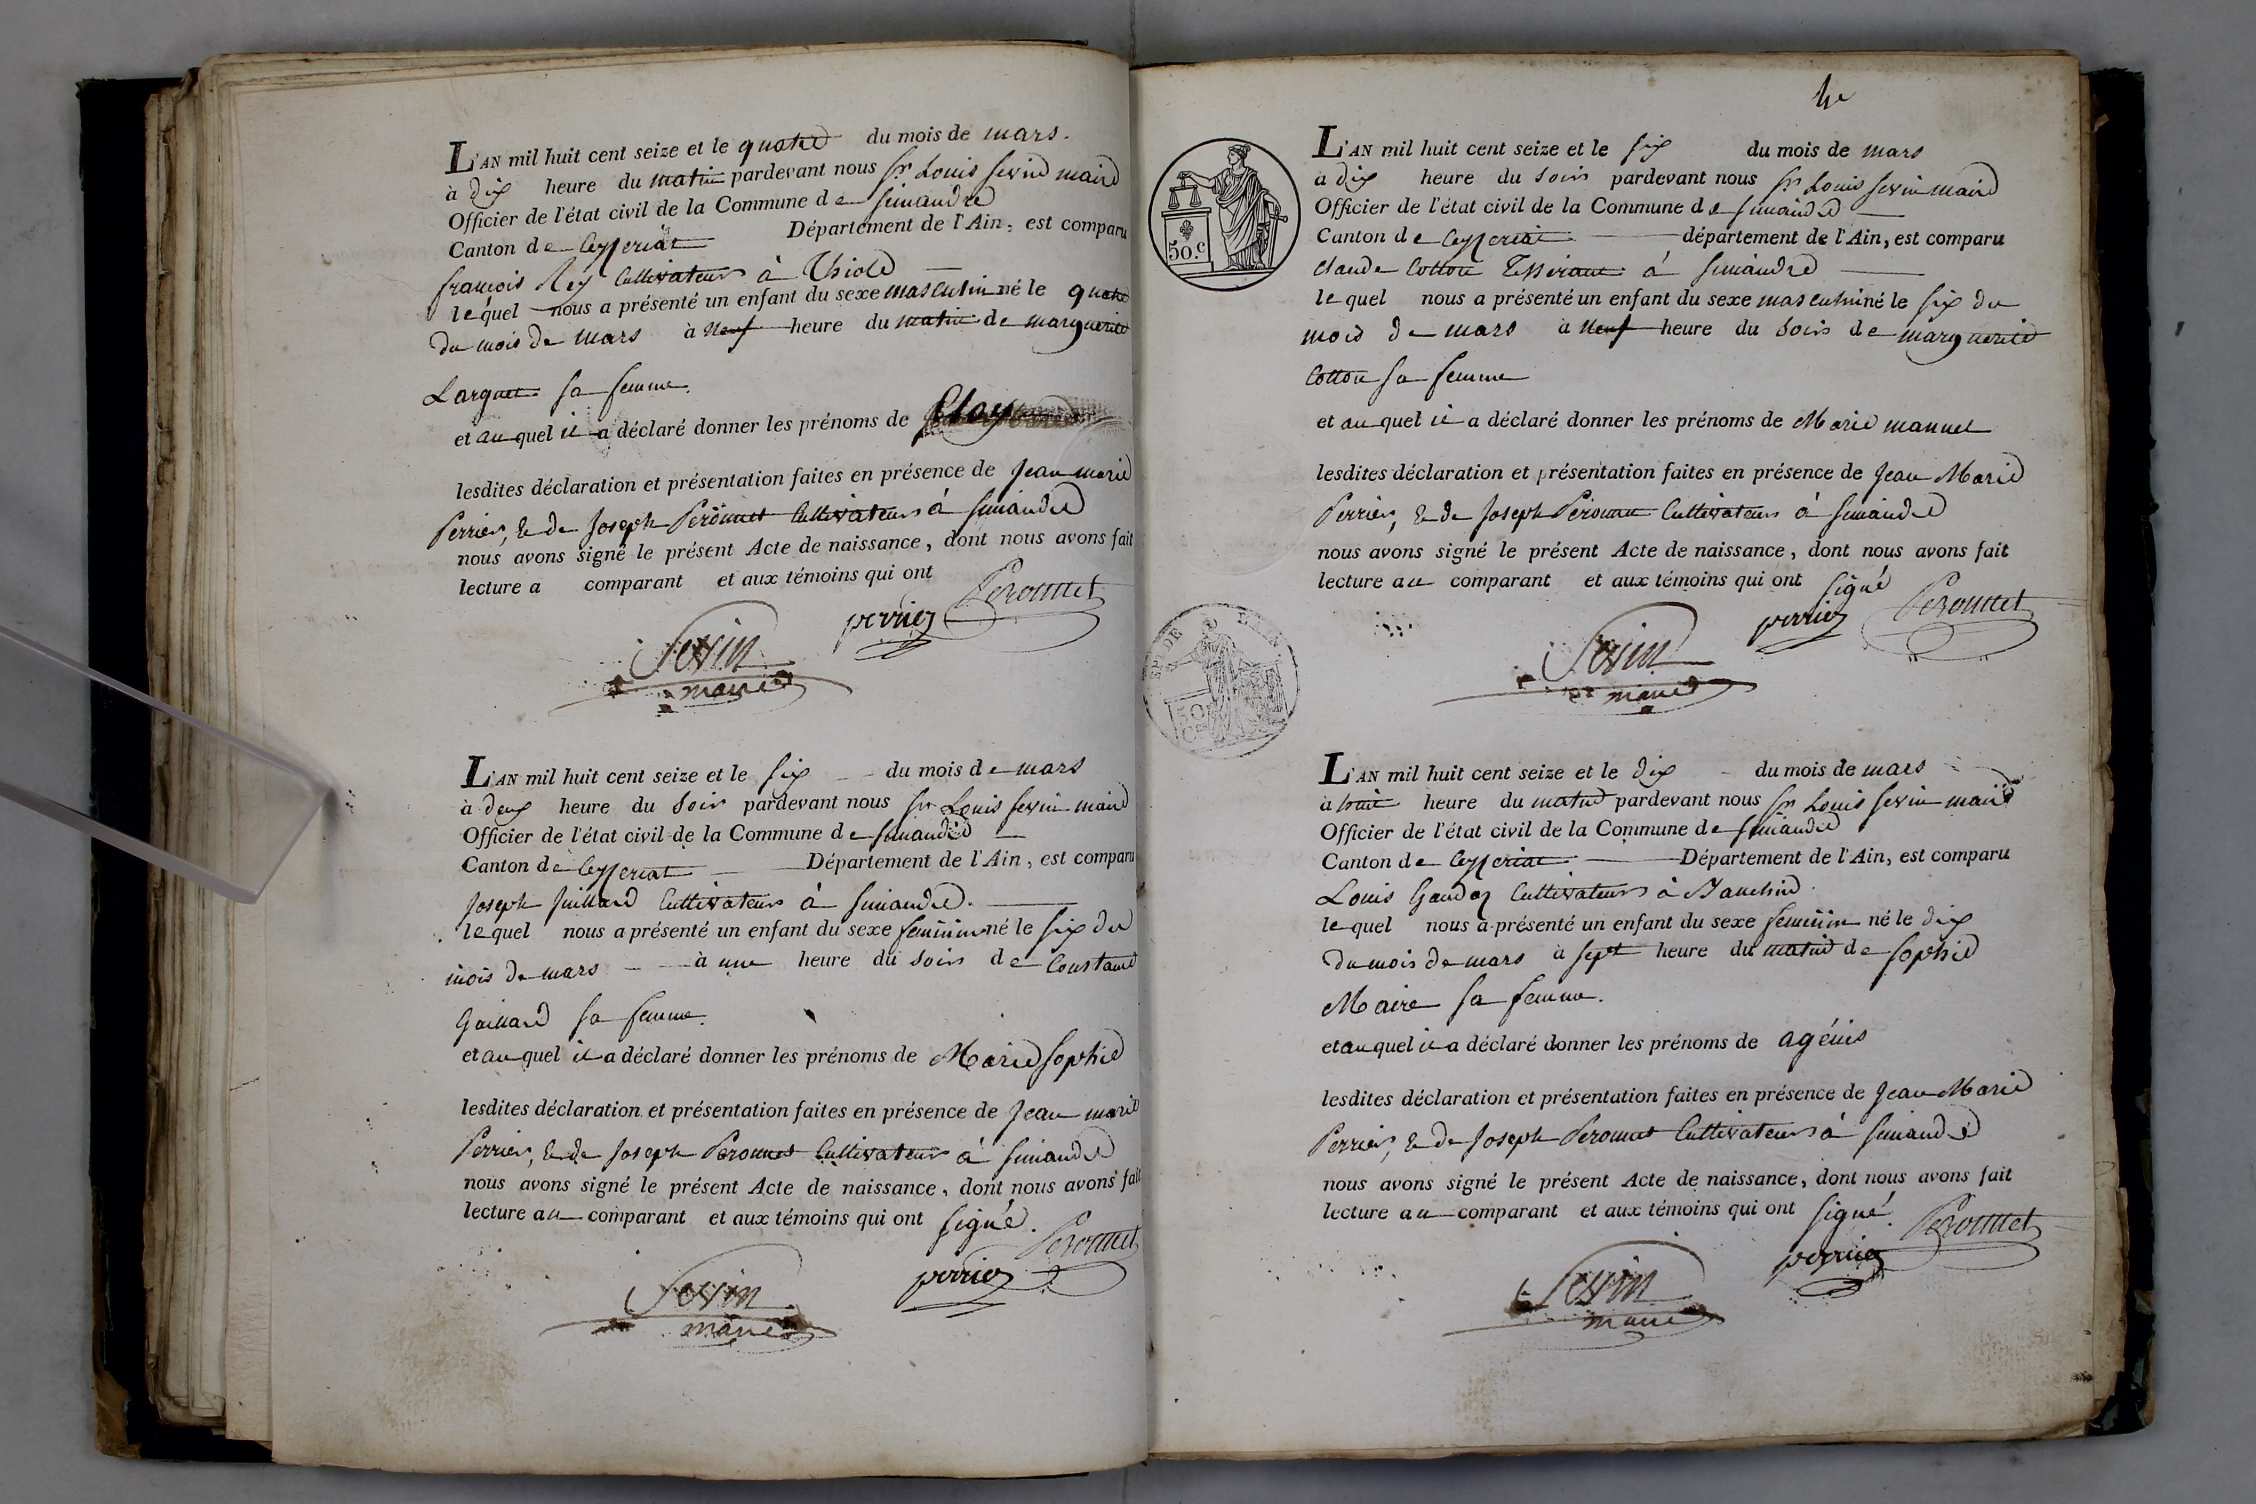 L'AN mil huit cent seize et le quatre du mois de mars.
à dix heure du matin pardevant nous Sr Louis Sevin maire
Officier de l'état civil de la Commune de Simandre
Canton de Ceyzeriat Département de l'Ain, est comparu
françois Rey Cultivateur à Thiole
lequel nous a présenté un enfant du sexe masculin né le quatre
du mois de mars à neuf heure du matin de marguerite
Larguet sa femme.
et auquel il a déclaré donner les prénoms de Eloy
lesdites déclaration et présentation faites en présence de Jean marie
Perrier, & de Joseph Peronnet Cultivateurs à Simandre
nous avons signé le présent Acte de naissance, dont nous avons fait
lecture a comparant et aux témoins qui ont
Peronnet
perrier
Sevin
maire
L'AN mil huit cent seize et le six du mois de mars
à deux heure du soir pardevant nous Sr Louis Sevin maire
Officier de l'état civil de la Commune de Simandre
Canton de Ceyzeriat Département de l'Ain, est comparu
Joseph Juillard Cultivateur à Simandre.
lequel nous a présenté un enfant du sexe feminin né le six du
mois de mars à une heure du soir de Constance
Gaillard sa femme.
et auquel il a déclaré donner les prénoms de Marie Sophie
lesdites déclaration et présentation faites en présence de Jean marie
Perrier, & de Joseph Peronnet Cultivateurs à Simandre
nous avons signé le présent Acte de naissance, dont nous avons fait
lecture au comparant et aux témoins qui ont signé.
Peronnet
perrier
Sevin
maire
4e
50.c
L'AN mil huit cent seize et le six du mois de mars
à dix heure du soir pardevant nous Sr Louis Sevin maire
Officier de l'état civil de la Commune de Simandre
Canton de Ceyzeriat département de l'Ain, est comparu
claude Cotton Tisserant à Simandre
lequel nous a présenté un enfant du sexe masculin né le six du
mois de mars à neuf heure du soir de marguerite
Cotton sa femme
et auquel il a déclaré donner les prénoms de Marie manuel
lesdites déclaration et présentation faites en présence de Jean Marie
Perrier, & de Joseph Peronnet Cultivateurs à Simandre
nous avons signé le présent Acte de naissance, dont nous avons fait
lecture au comparant et aux témoins qui ont signé
Peronnet
perrier
Sevin
maire
L'AN mil huit cent seize et le dix du mois de mars
à huit heure du matin pardevant nous Sr Louis Sevin maire
Officier de l'état civil de la Commune de Simandre
Canton de Ceyzeriat Département de l'Ain, est comparu
Louis Gandoz Cultivateur à
lequel nous a présenté un enfant du sexe feminin né le dix
du mois de mars à sept heure du matin de sophie
Maire sa femme.
et auquel il a déclaré donner les prénoms de agénis
lesdites déclaration et présentation faites en présence de Jean Marie
Perrier, & de Joseph Peronnet Cultivateurs à Simandre
nous avons signé le présent Acte de naissance, dont nous avons fait
lecture au comparant et aux témoins qui ont signé.
Peronnet
perrier
Sevin
maire